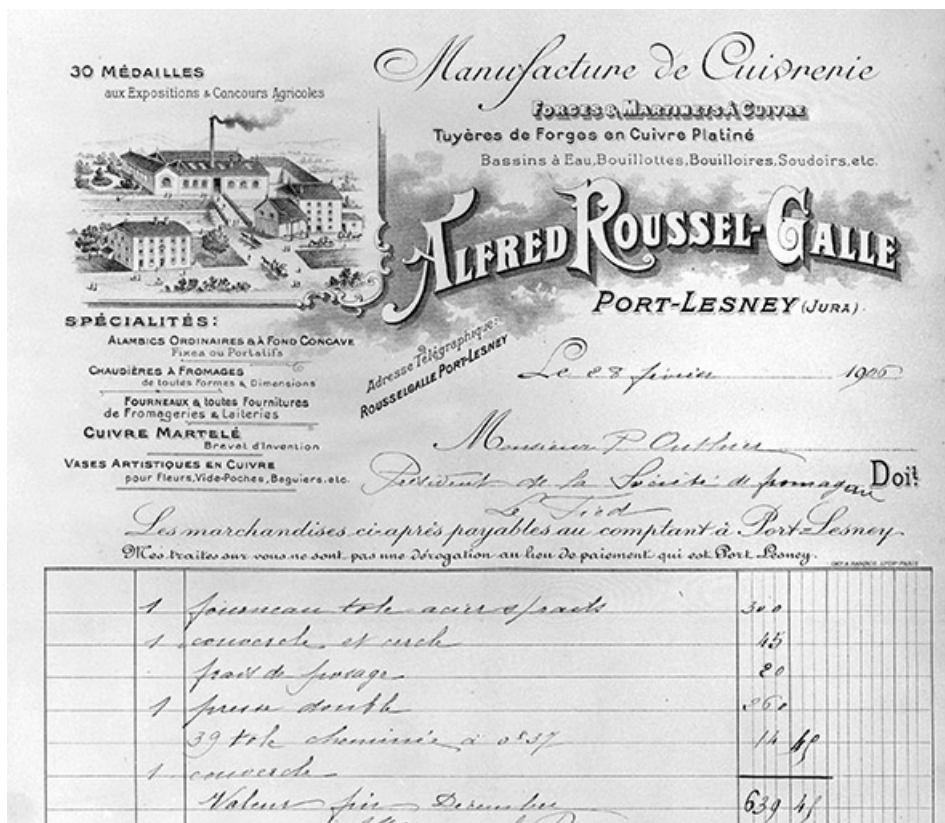 30 MÉDAILLES
aux Expositions & Concours Agricoles
Manufacture de Cuivrerie
FORGES & MARTINETS À CUIVRE
Tuyères de Forges en Cuivre Platiné
Bassins à Eau, Bouillottes, Bouilloires, Soudoirs, etc.
ALFRED ROUSSEL-GALLE
PORT-LESNEY (JURA)
SPÉCIALITÉS:
ALAMBICS ORDINAIRES & À FOND CONCAVE
Fixes ou Portatifs
CHAUDIÈRES À FROMAGES
de toutes Formes & Dimensions
FOURNEAUX & toutes Fournitures
de Fromageries & Laiteries
CUIVRE MARTELÉ
Brevet d'Invention
VASES ARTISTIQUES EN CUIVRE
pour Fleurs, Vide-Poches, Baguiers, etc.
Adresse Télégraphique:
ROUSSELGALLE PORT-LESNEY
Le 28 février 1906
Monsieur P. Outhier
Président de la Société de fromagerie Doit
Le Fied
Les marchandises ci-après payables au comptant à Port-Lesney
Mes traites sur vous ne sont pas une dérogation au lieu de paiement qui est Port Lesney.
1 fourneau tole acier 300
1 couvercle et cercle 45
frais de posage 20
1 presse double 260
39 tole cheminée à 0f37 14 45
1 couvercle
Valeur fin Decembre 639 45